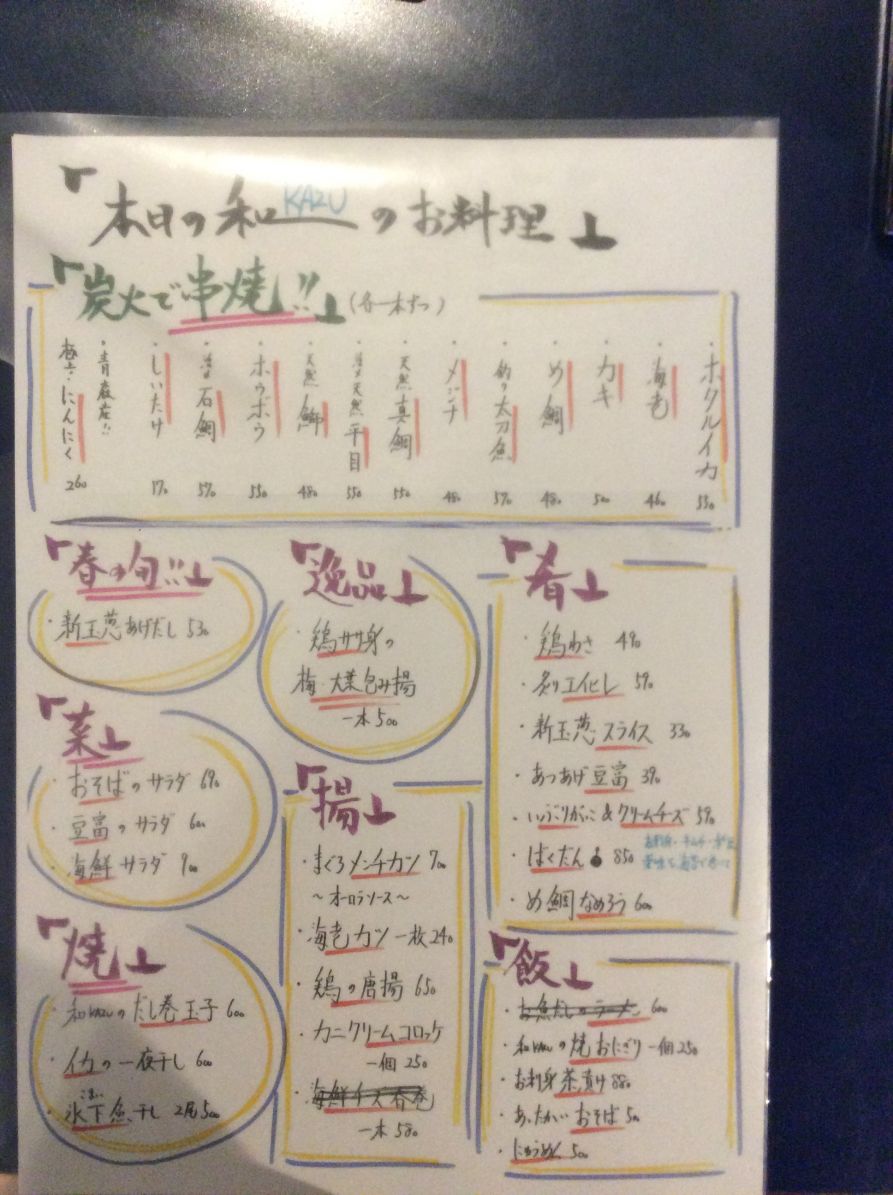 『本日の和KAZUのお料理』
『炭火で串焼!!』(各一本ずつ)
・ホタルイカ 550
・海老 460
・カキ 500
・め鯛 480
・釣り太刀魚 570
・メジナ 480
・天然真鯛 550
・天然平目 550
・天然鰤 480
・ホウボウ 550
・石鯛 570
・しいたけ 170
・青森産!!
にんにく 260
『春の旬!!』
・新玉葱あげだし 530
『逸品』
・鶏ササ身の
梅・大葉包み揚
一本500
『肴』
・鶏わさ 490
・炙りエイヒレ 590
・新玉葱スライス 330
・あつあげ豆富 390
・いぶりがっこ&クリームチーズ 590
・ばくだん 850
・め鯛なめろう 600
『菜』
・おそばのサラダ 690
・豆富のサラダ 600
・海鮮サラダ 900
『揚』
・まぐろメンチカツ 700
〜オーロラソース〜
・海老カツ 一枚240
・鶏の唐揚 650
・カニクリームコロッケ
一個 250
・海鮮チーズ春巻
一本 580
『焼』
・和KAZUのだし巻玉子 600
・イカの一夜干し 600
・氷下魚干し 2尾500
こまい
『飯』
・お魚だしのラーメン 600
・和KAZUの焼おにぎり 一個250
・お刺身茶漬け 880
・あったかいおそば 500
・にゅうめん 500